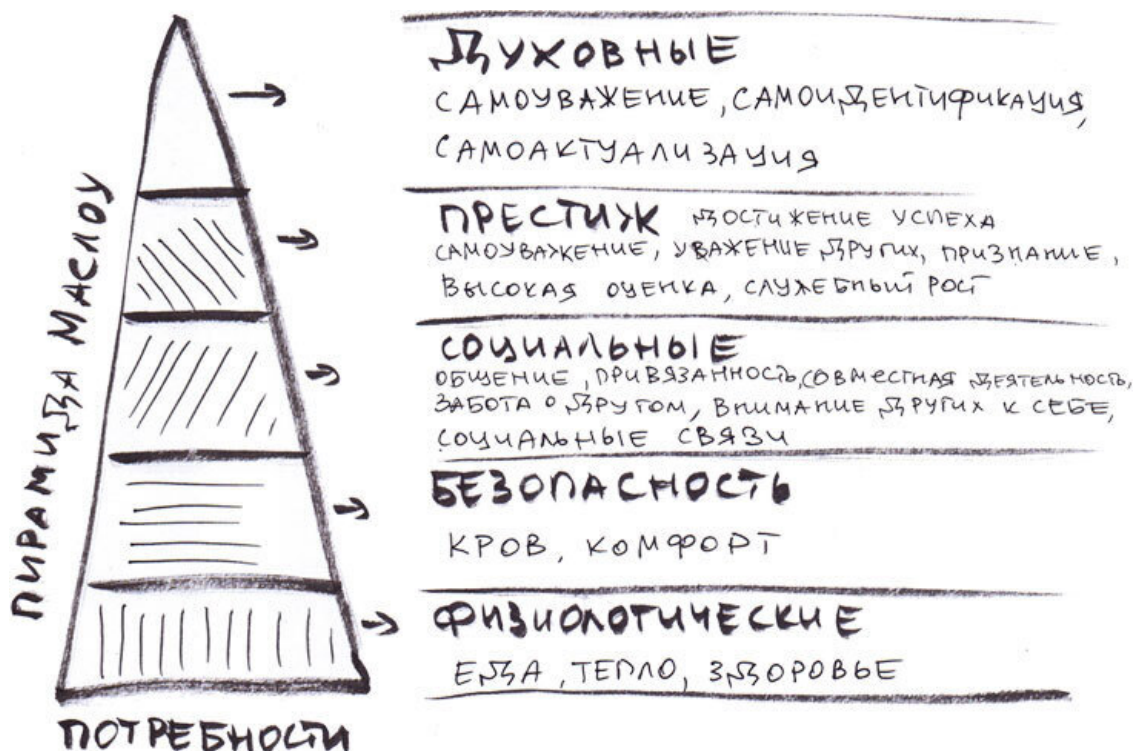 ПИРАМИДА МАСЛОУ
ДУХОВНЫЕ
САМОУВАЖЕНИЕ, САМОИДЕНТИФИКАЦИЯ,
САМОАКТУАЛИЗАЦИЯ
ПРЕСТИЖ ДОСТИЖЕНИЕ УСПЕХА
САМОУВАЖЕНИЕ, УВАЖЕНИЕ ДРУГИХ, ПРИЗНАНИЕ,
ВЫСОКАЯ ОЦЕНКА, СЛУЖЕБНЫЙ РОСТ
СОЦИАЛЬНЫЕ
ОБЩЕНИЕ, ПРИВЯЗАННОСТЬ, СОВМЕСТНАЯ ДЕЯТЕЛЬНОСТЬ,
ЗАБОТА О ДРУГОМ, ВНИМАНИЕ ДРУГИХ К СЕБЕ,
СОЦИАЛЬНЫЕ СВЯЗИ
БЕЗОПАСНОСТЬ
КРОВ, КОМФОРТ
ФИЗИОЛОГИЧЕСКИЕ
ЕДА, ТЕПЛО, ЗДОРОВЬЕ
ПОТРЕБНОСТИ